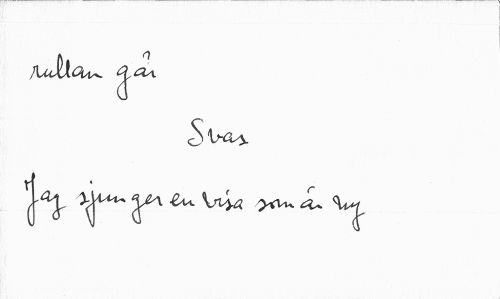 rullan går
Svar
Jag sjunger en visa som är ny